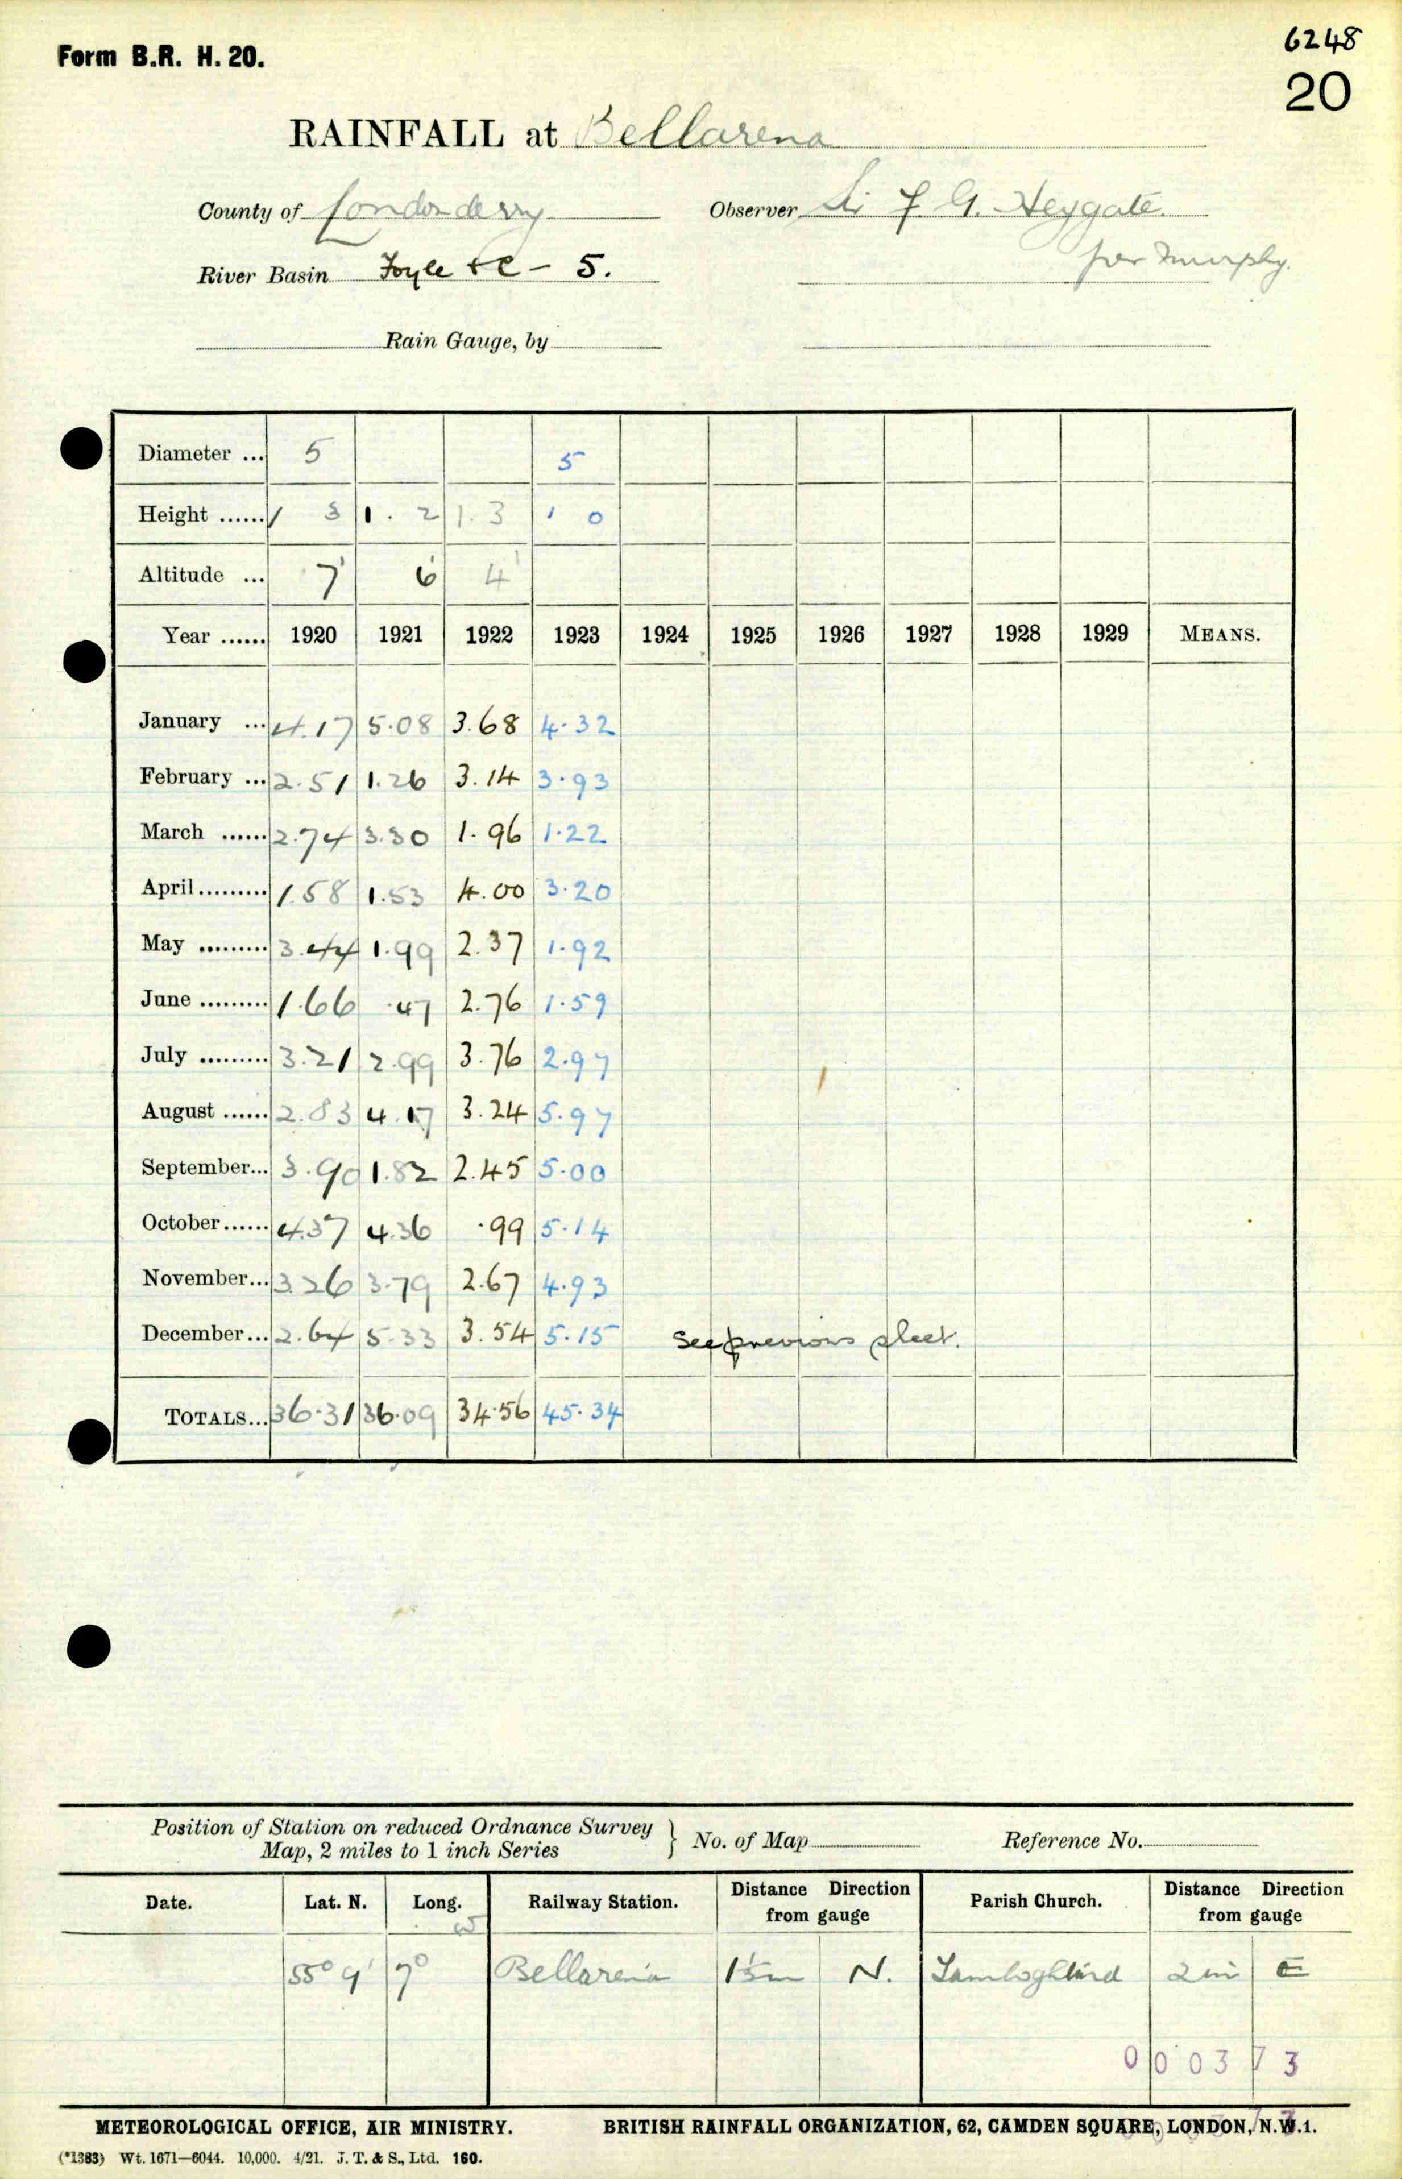 6248
Form B.R. H. 20.
20
RAINFALL at Bellarena
County of Londonderry Observer Sir F. G. Heygate.
River Basin Foyle &c - 5. per Murphy.
Rain Gauge, by
Diameter ... 5 5
Height ...... 1 3 1. 2 1. 3 1 0
Altitude ... 7' 6' 4'
Year ...... 1920 1921 1922 1923 1924 1925 1926 1927 1928 1929 MEANS.
January ... 4.17 5.08 3.68 4.32
February ... 2.51 1.26 3.14 3.93
March ...... 2.74 3.30 1.96 1.22
April ......... 1.58 1.53 4.00 3.20
May ......... 3.44 1.99 2.37 1.92
June ......... 1.66 .47 2.76 1.59
July ......... 3.21 2.99 3.76 2.97
August ...... 2.83 4.17 3.24 5.97
September... 3.90 1.82 2.45 5.00
October ...... 4.37 4.36 .99 5.14
November... 3.26 3.79 2.67 4.93
December ... 2.64 5.33 3.54 5.15 See previous sheet.
TOTALS... 36.31 36.09 34.56 45.34
Position of Station on reduced Ordnance Survey
Map, 2 miles to 1 inch Series } No. of Map Reference No.
Date. Lat. N. Long. W Railway Station. Distance Direction from gauge Parish Church. Distance Direction from gauge
55° 9' 7° Bellarena 1½m N. Tamlaghtard 2m E
000373
METEOROLOGICAL OFFICE, AIR MINISTRY. BRITISH RAINFALL ORGANIZATION, 62, CAMDEN SQUARE, LONDON, N.W.1.
(*1383) Wt. 1671—6044. 10,000. 4/21. J. T. & S., Ltd. 160.